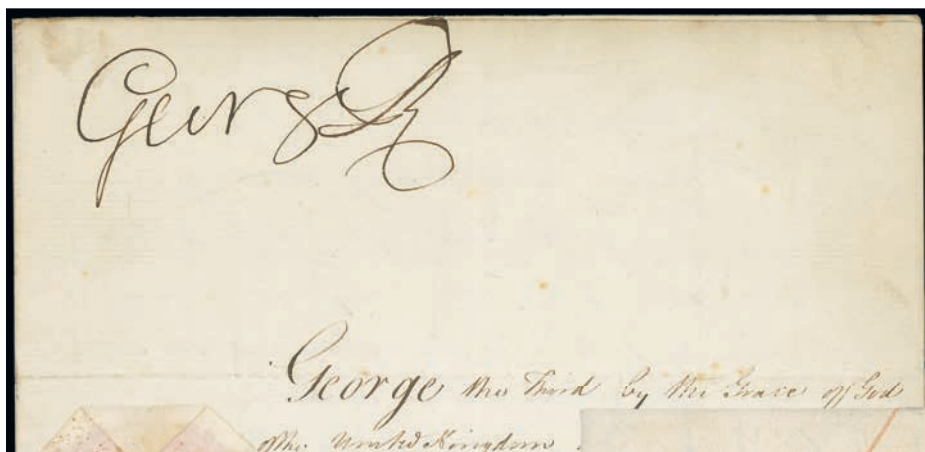 George R
George the Third by the Grace of God
of the United Kingdom